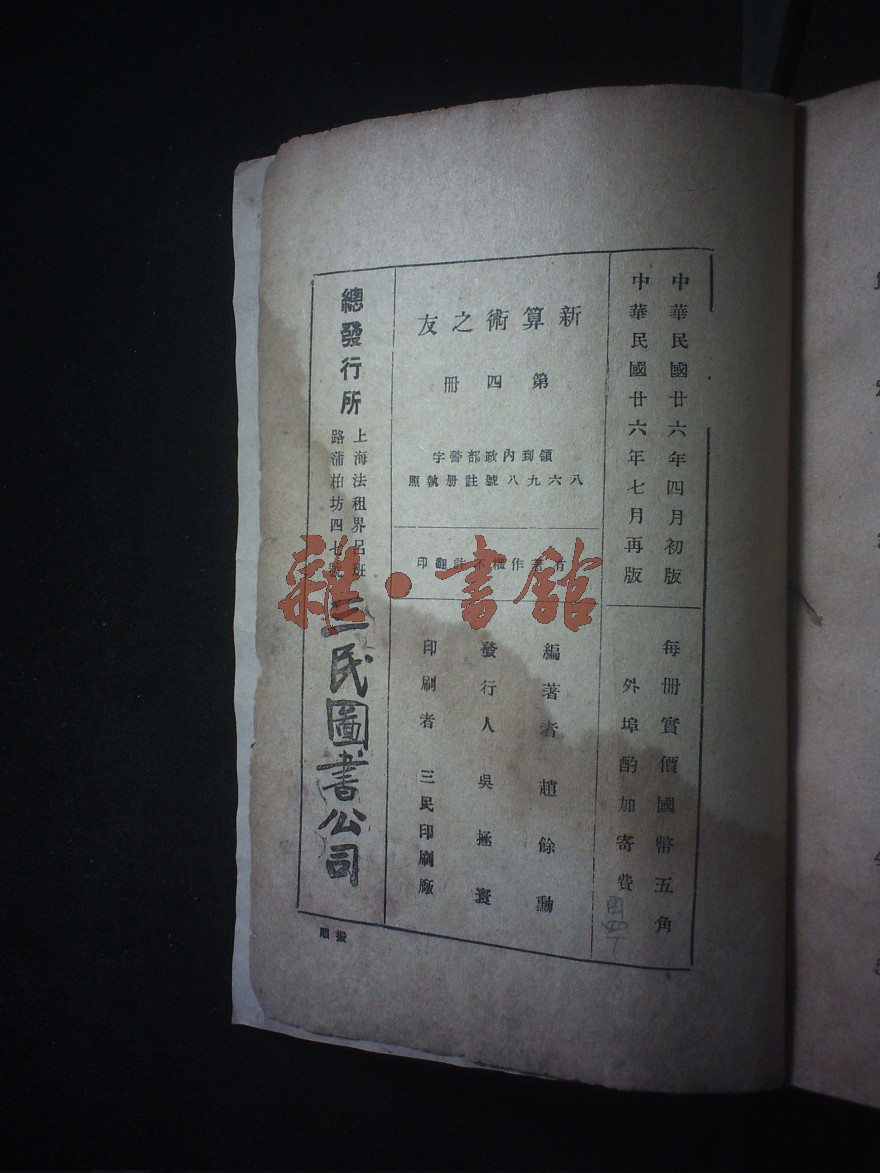 中華民國廿六年四月初版
中華民國廿六年七月再版
每冊實價國幣五角
外埠酌加寄費
新算術之友
第四冊
領到內政部警字
八六九八號註册執照
有著作權不許翻印
編著者 趙餘勳
發行人 吳拯寰
印刷者 三民印刷廠
總發行所
上海法租界呂班
路蒲柏坊四七號
三民圖書公司
振順
雜·書館